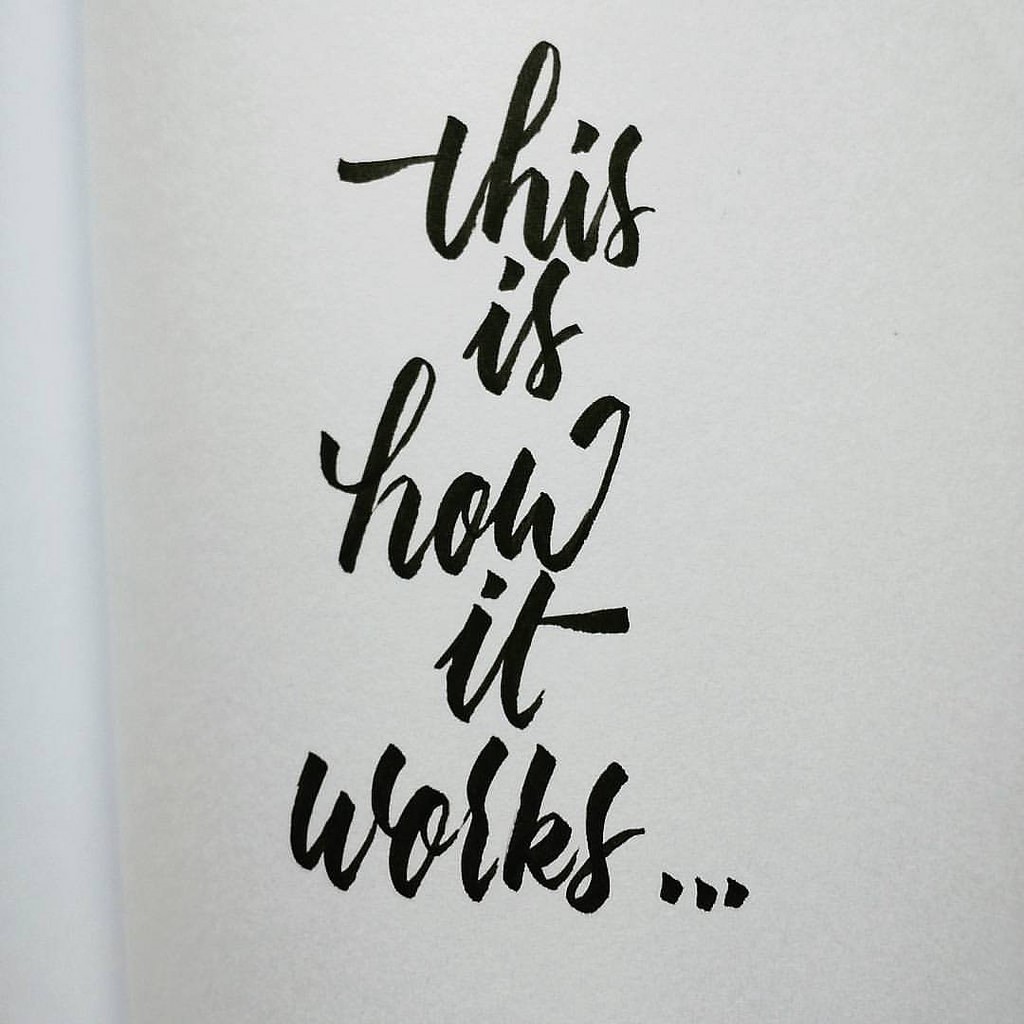 this
is
how
it
works...